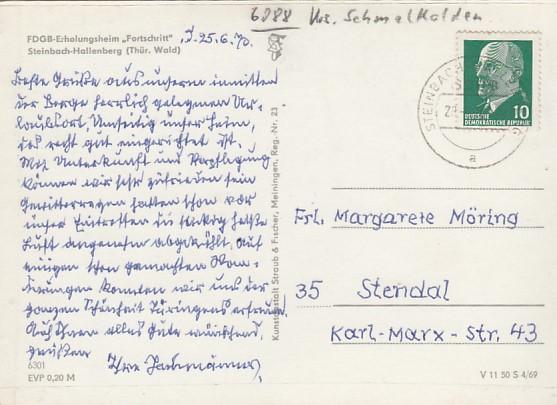 6088 Krs. Schmalkalden
FDGB-Erholungsheim „Fortschritt"
Steinbach-Hallenberg (Thür. Wald)
25.6.70.
Beste Grüße aus unserm inmitten
der Berge herrlich gelegenen Ur-
laubsort. Umseitig unser Heim,
das recht gut eingerichtet ist.
Mit Unterkunft und Verpflegung
können wir sehr zufrieden sein
Gewitterregen hatten schon vor
unser Eintreffen die stickig heiße
Luft angenehm abgekühlt. Auf
einigen schon gemachten Wan-
derungen konnten wir uns der
ganzen Schönheit Thüringens erfreuen.
Auch Ihnen alles Gute wünschend,
grüßen
Ihre
6301
EVP 0,20 M
Kunstanstalt Straub & Fischer, Meiningen, Reg.-Nr. 23
STEINBACH
a
10
DEUTSCHE
DEMOKRATISCHE REPUBLIK
Frl. Margarete Möring
35 Stendal
Karl-Marx-Str. 43
V 11 50 S 4/69